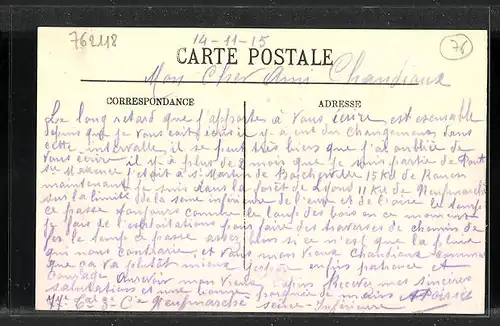 762118
14-11-15
76
CARTE POSTALE
Mon Cher Ami Chandioux
CORRESPONDANCE ADRESSE
Le long retard que j'apporte à vous écrire est excusable
depuis que je vous ai écrit il y a eut des changements dans
cette intervalle, il se peut très bien que j'ai oublié de
vous écrire il y a plus de 2 mois que je suis partie de Pont
St Maxence j'ait été a St Martin de Boscherville 15 Kil de Rouen
maintenant je suis dans la forêt de Lyons 11 Kil de Neufmarché
sur la limite de la seine inférieure de l'eure et de l'oise le temps
ce passe toujours comme le loup des bois en ce moment
je fais de l'exploitations pour faire des traverses de chemin de
fer le temp ce passe assez bien si ce n'est que la pluie
qui nous contrarie, et vous mon vieux Chandioux comment
que ca va plutôt mieux j'espère enfin patience et
courage Au revoir mon vieux recevez mes sincères
salutations et une bonne poignée de mains
Cie Neufmarché seine Inférieure